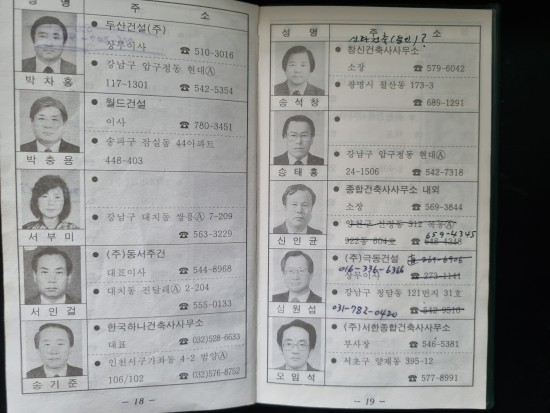 성 명 주 소
● 두산건설(주)
상무이사 ☎ 510-3016
● 강남구 압구정동 현대Ⓐ
117-1301 ☎ 542-5354
박 차 흥
● 월드건설
이사 ☎ 780-3451
● 송파구 잠실동 44아파트
448-403
박 충 용
●
● 강남구 대치동 쌍용Ⓐ 7-209
☎ 563-3229
서 부 미
● (주)동서주건
대표이사 ☎ 544-8968
● 대치동 진달래Ⓐ 2-204
☎ 555-0133
서 인 걸
● 한국하나건축사사무소
대표 ☎ 032)528-6633
● 인천서구가좌동 4-2 범양Ⓐ
106/102 ☎ 032)576-8752
송 기 준
- 18 -
성 명 주 소
● 창신건축사사무소
소장 ☎ 579-6042
● 광명시 철산동 173-3
☎ 689-1291
송 석 창
●
● 강남구 압구정동 현대Ⓐ
24-1506 ☎ 542-7318
송 태 흥
● 종합건축사사무소 내외
소장 ☎ 569-3844
● 양천구 신정동 312 목동Ⓐ
659-4345
322동 604호 ☎ 648-4348
신 인 균
● (주)극동건설
016-336-6366
상무이사 ☎ 273-1141
● 강남구 청담동 121번지 31호
031-782-0420 ☎ 542-9516
심 원 섭
● (주)서한종합건축사사무소
부사장 ☎ 546-5381
● 서초구 양재동 395-12
☎ 577-8991
오 임 석
- 19 -